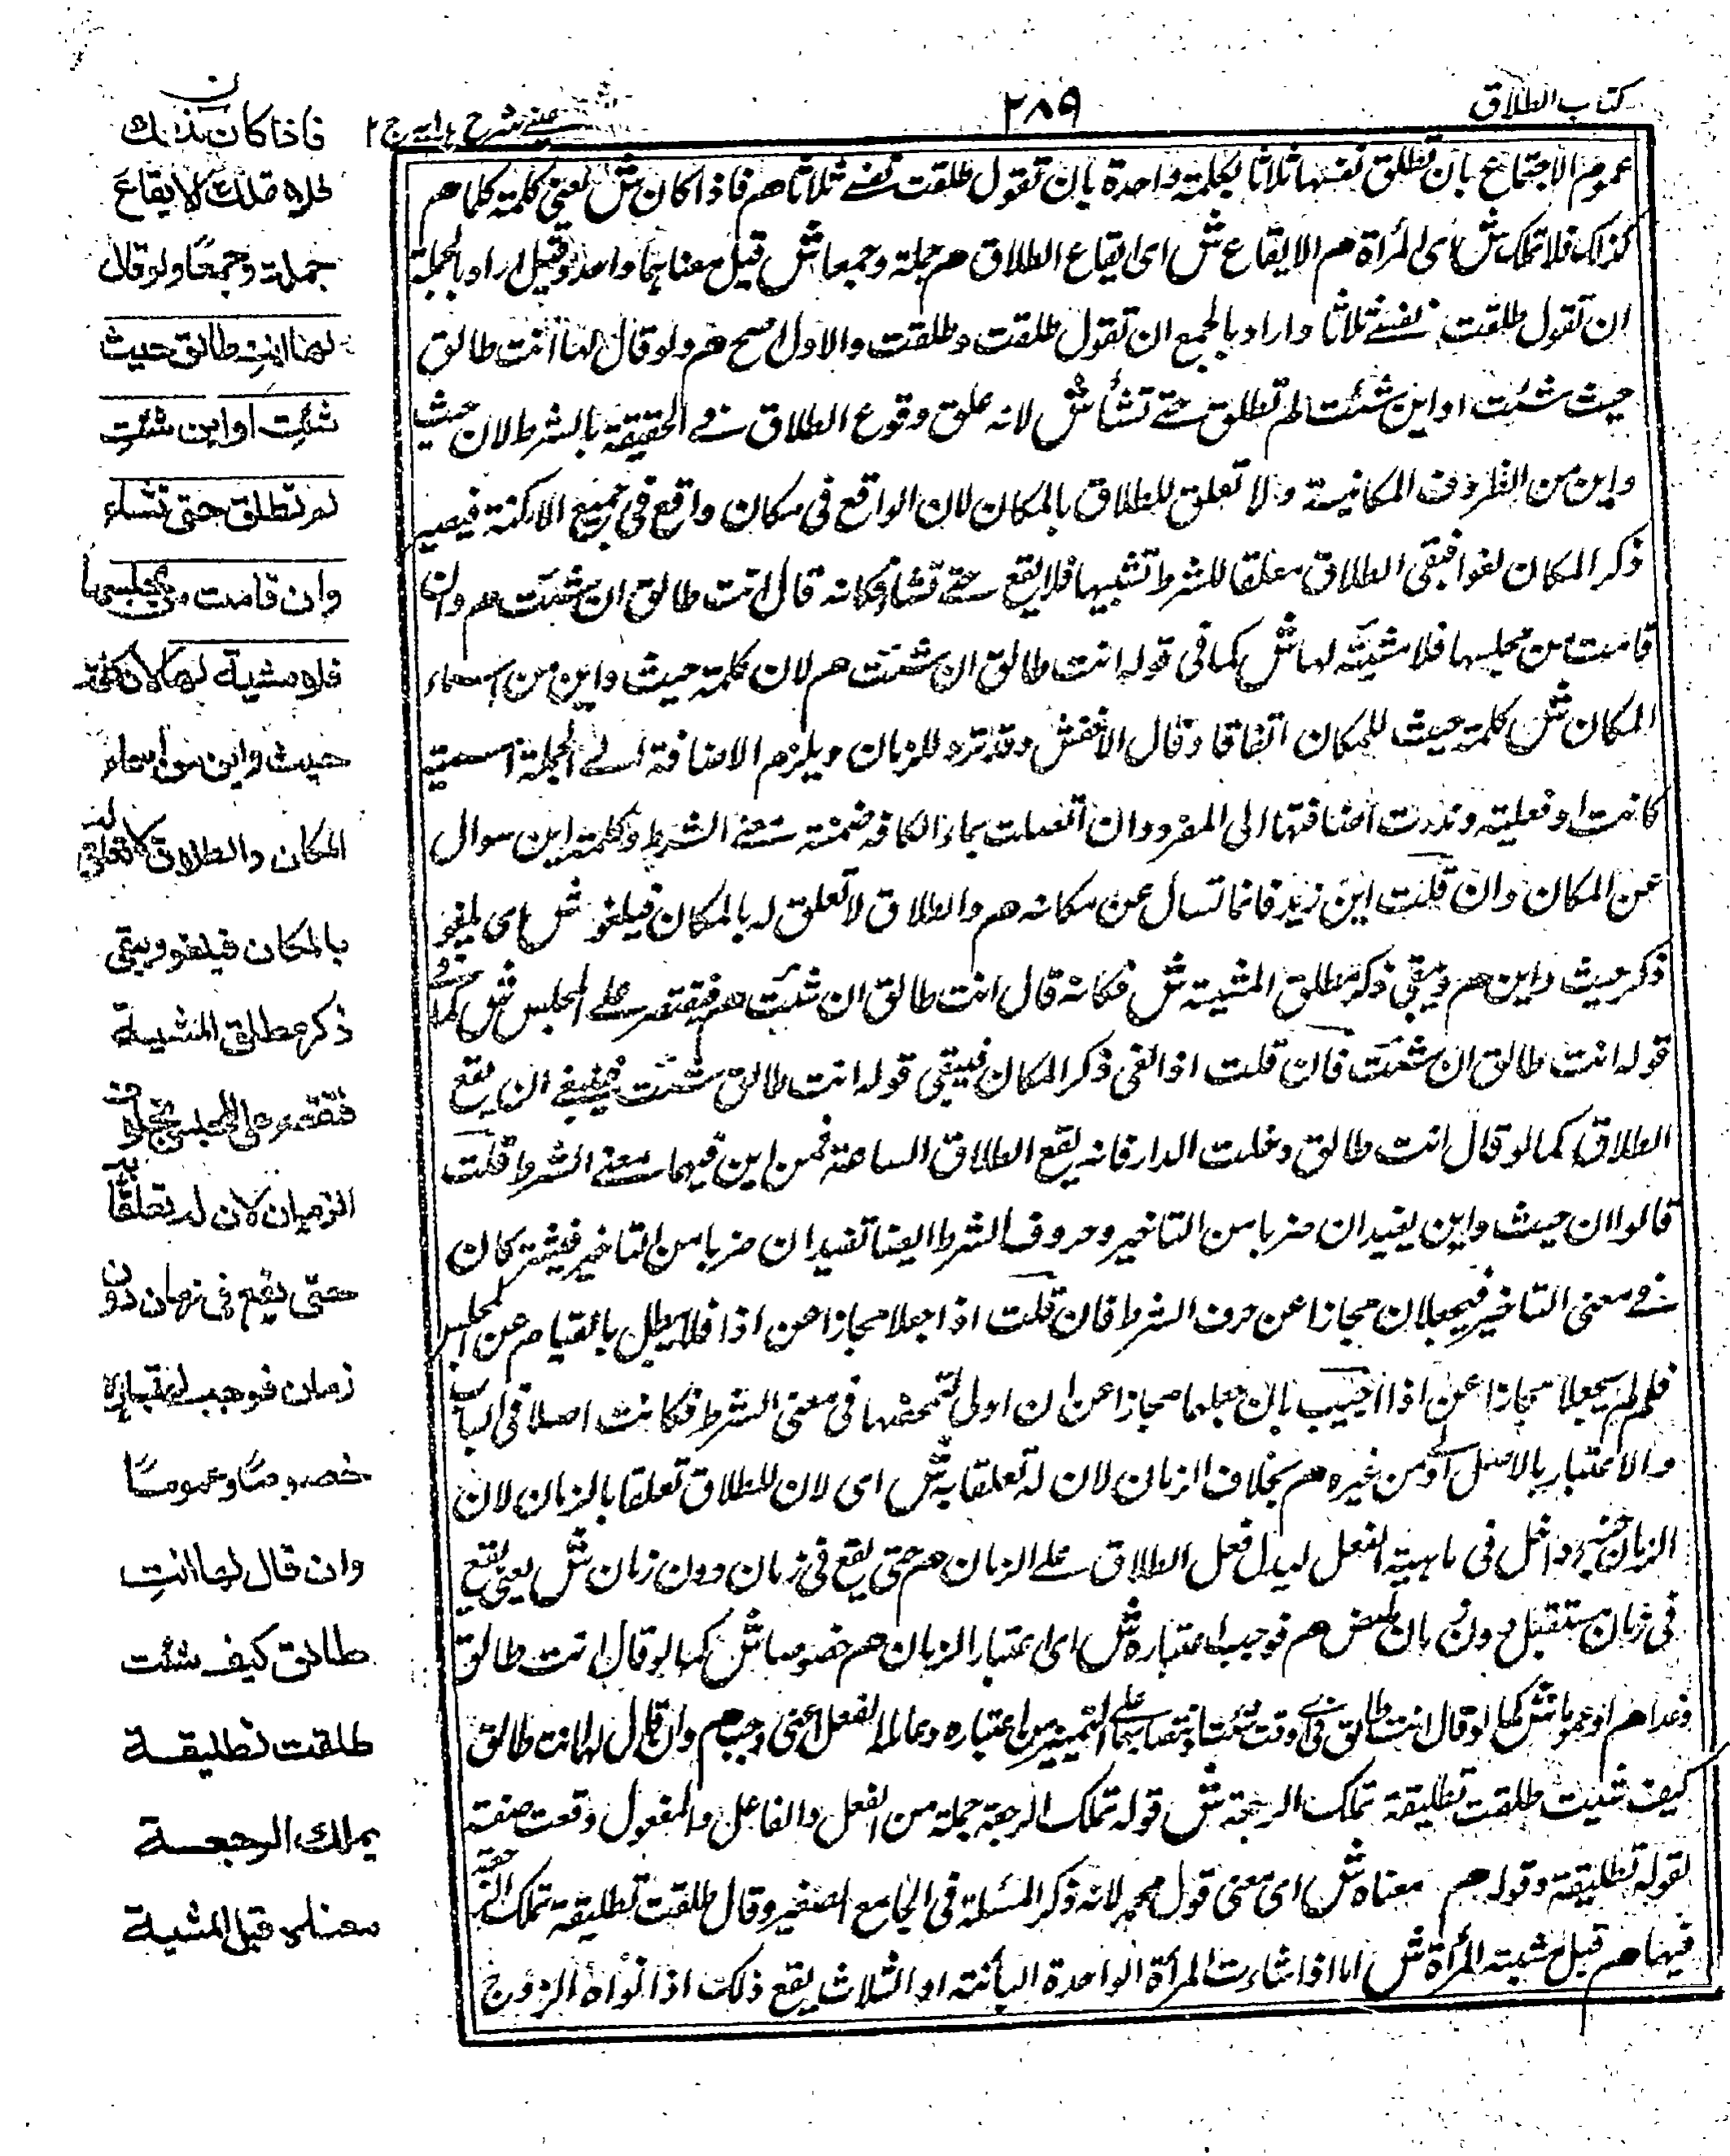 كتاب الطلاق
٢٨٩
عيني شرح هدايه ج ٢
عموم الاجتماع بان تطلق نفسها ثلاثا بكلمة واحدة بان تقول طلقت نفسے ثلاثا هم فاذا كان ش يعني كلمة كلما هم
كذلك فلا تملك ش اى المرأة هم الا يقاع ش اى ايقاع الطلاق هم جملة وجمعا ش قيل معناهما واحد وقيل اراد بالجملة
ان تقول طلقت نفسے ثلاثا واراد بالجمع ان تقول طلقت وطلقت والاول اصح هم ولو قال لها انت طالق
حيث شئت او اين شئت لم تطلق حتے تشأ ش لانه علق وقوع الطلاق فے الحقيقة بالشرط لان حيث
واين من الظروف المكانية ولا تعلق للطلاق بالمكان لان الواقع فى مكان واقع فى جميع الامكنة فيصير
ذكر المكان لغوا فبقى الطلاق معلقا للشرط تشبيها فلا يقع حتے تشأ فكانه قال انت طالق ان شئت هم وان
قامت من مجلسها فلا مشيئة لها ش كما فى قوله انت طالق ان شئت هم لان كلمة حيث واين من اسماء
المكان ش كلمة حيث للمكان اتفاقا وقال الاخفش وقد ترد للزمان ويلزم الاضافة الے الجملة اسمية
كانت او فعلية وندرت اضافتها الى المفرد وان اتصلت بماء الكافة ضمنت معنے الشرط وكلمة اين سوال
عن المكان وان قلت اين زيد فانما تسأل عن مكانه هم والطلاق لا تعلق له بالمكان فيلغو ش اى يلغو
ذكر حيث واين هم ويبقى ذكر مطلق المشية ش فكانه قال انت طالق ان شئت هم فيقتصر علے المجلس ش كما فے
قوله انت طالق ان شئت فان قلت اذا لغى ذكر المكان فيبقى قوله انت طالق شئت فينبغے ان يقع
الطلاق كما لو قال انت طالق دخلت الدار فانه يقع الطلاق الساعة فمن اين فيهما معنے الشرط قلت
قالوا ان حيث واين يفيدان ضربا من التاخير وحروف الشرط ايضا تفيد ان ضربا من التاخير فيشتركان
فے معنى التاخير فيجعلان مجازا عن حرف الشرط فان قلت اذا جعلا مجازا عن اذا فلا يبطل بالقيام عن المجلس
فلم لم يجعلا مجازا عن اذا اجيب بان جعلهما مجازا عن ان اولى لتمحضها فى معنى الشرط فكانت اصلا فى الباب
والاعتبار بالاصل اولى من غيره هم بخلاف الزمان لان له تعلقا به ش اى لان للطلاق تعلقا بالزمان لان
الزمان جزء داخل فى ماهية الفعل ليدل فعل الطلاق علے الزمان هم حتى يقع فى زمان دون زمان ش يعنى يقع
فى زمان مستقبل دون زمان هم فوجب اعتباره ش اى اعتبار الزمان هم خصوصا ش كما لو قال انت طالق
غدا هم او عموما ش كما لو قال انت طالق فى اى وقت شئت وانتصابهما علے التمييز من اعتباره وعاملهما الفعل اعنى وجب هم وان قال لها انت طالق
كيف شيت طلقت تطليقة تملك الرجعة ش قوله تملك الرجعة جملة من الفعل والفاعل والمفعول وقعت صفة
لقوله تطليقة وقوله هم معناه ش اى معنى قول محمد لانه ذكر المسئلة فى الجامع الصغير وقال طلقت تطليقة تملك الرجعة
فيها هم قبل مشية المرأة ش اما اذا شاءت المرأة الواحدة البائنة او الثلاث يقع ذلك اذا نواه الزوج
فاذا كان كذلك
فلا تملك الايقاع
جملة وجمعًا ولو قال
لها انتِ طالق حيث
شئتِ او اين شئتِ
لم تطلق حتى تشاء
وان قامت من مجلسها
فلا مشية لها لان كلمة
حيث واين من اسماء
المكان والطلاق لا تعلق له
بالمكان فيلغو ويبقى
ذكر مطلق المشية
فيقتصر على المجلس بخلاف
الزمان لان له تعلقًا به
حتى يقع فى زمان دون
زمان فوجب اعتباره
خصوصًا وعمومًا
وان قال لها انتِ
طالق كيف شئت
طلقت تطليقة
يملك الرجعة
معناه قبل المشية